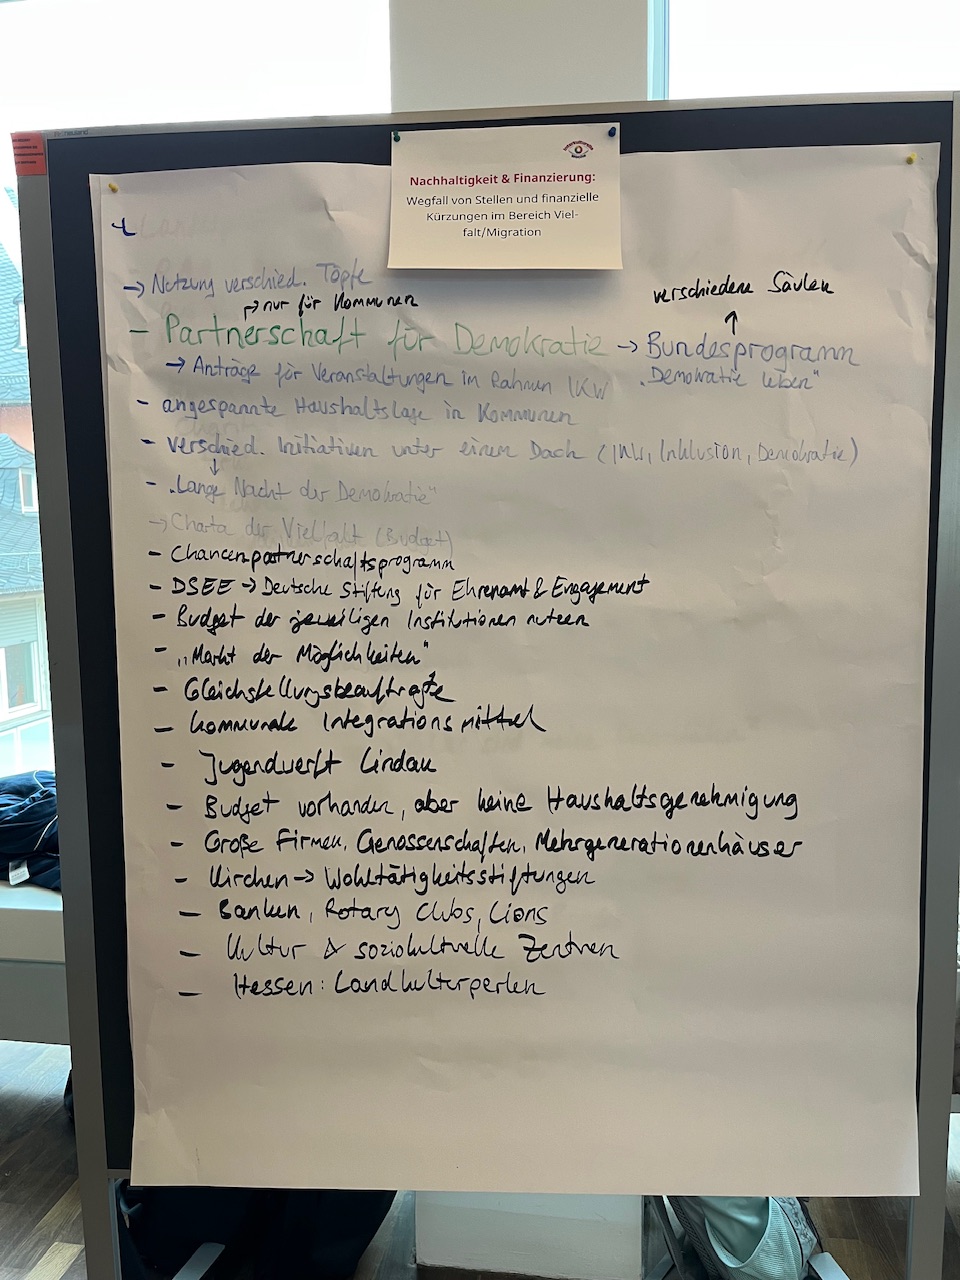 Nachhaltigkeit & Finanzierung:
Wegfall von Stellen und finanzielle
Kürzungen im Bereich Viel-
falt/Migration
→ Nutzung verschied. Töpfe
↱ nur für Kommunen
verschiedene Säulen
↑
- Partnerschaft für Demokratie → Bundesprogramm
„Demokratie leben“
→ Anträge für Veranstaltungen im Rahmen IKW
- angespannte Haushaltslage in Kommunen
- verschied. Initiativen unter einem Dach (IKW, Inklusion, Demokratie)
↓
- „Lange Nacht der Demokratie“
→ Charta der Vielfalt (Budget)
- Chancenpartnerschaftsprogramm
- DSEE → Deutsche Stiftung für Ehrenamt & Engagement
- Budget der jeweiligen Institutionen nutzen
- „Markt der Möglichkeiten“
- Gleichstellungsbeauftragte
- kommunale Integrationsmittel
- Jugendwerft Lindau
- Budget vorhanden, aber keine Haushaltsgenehmigung
- Große Firmen, Genossenschaften, Mehrgenerationenhäuser
- Kirchen → Wohltätigkeitsstiftungen
- Banken, Rotary Clubs, Lions
- Kultur & soziokulturelle Zentren
- Hessen: Landkulturperlen